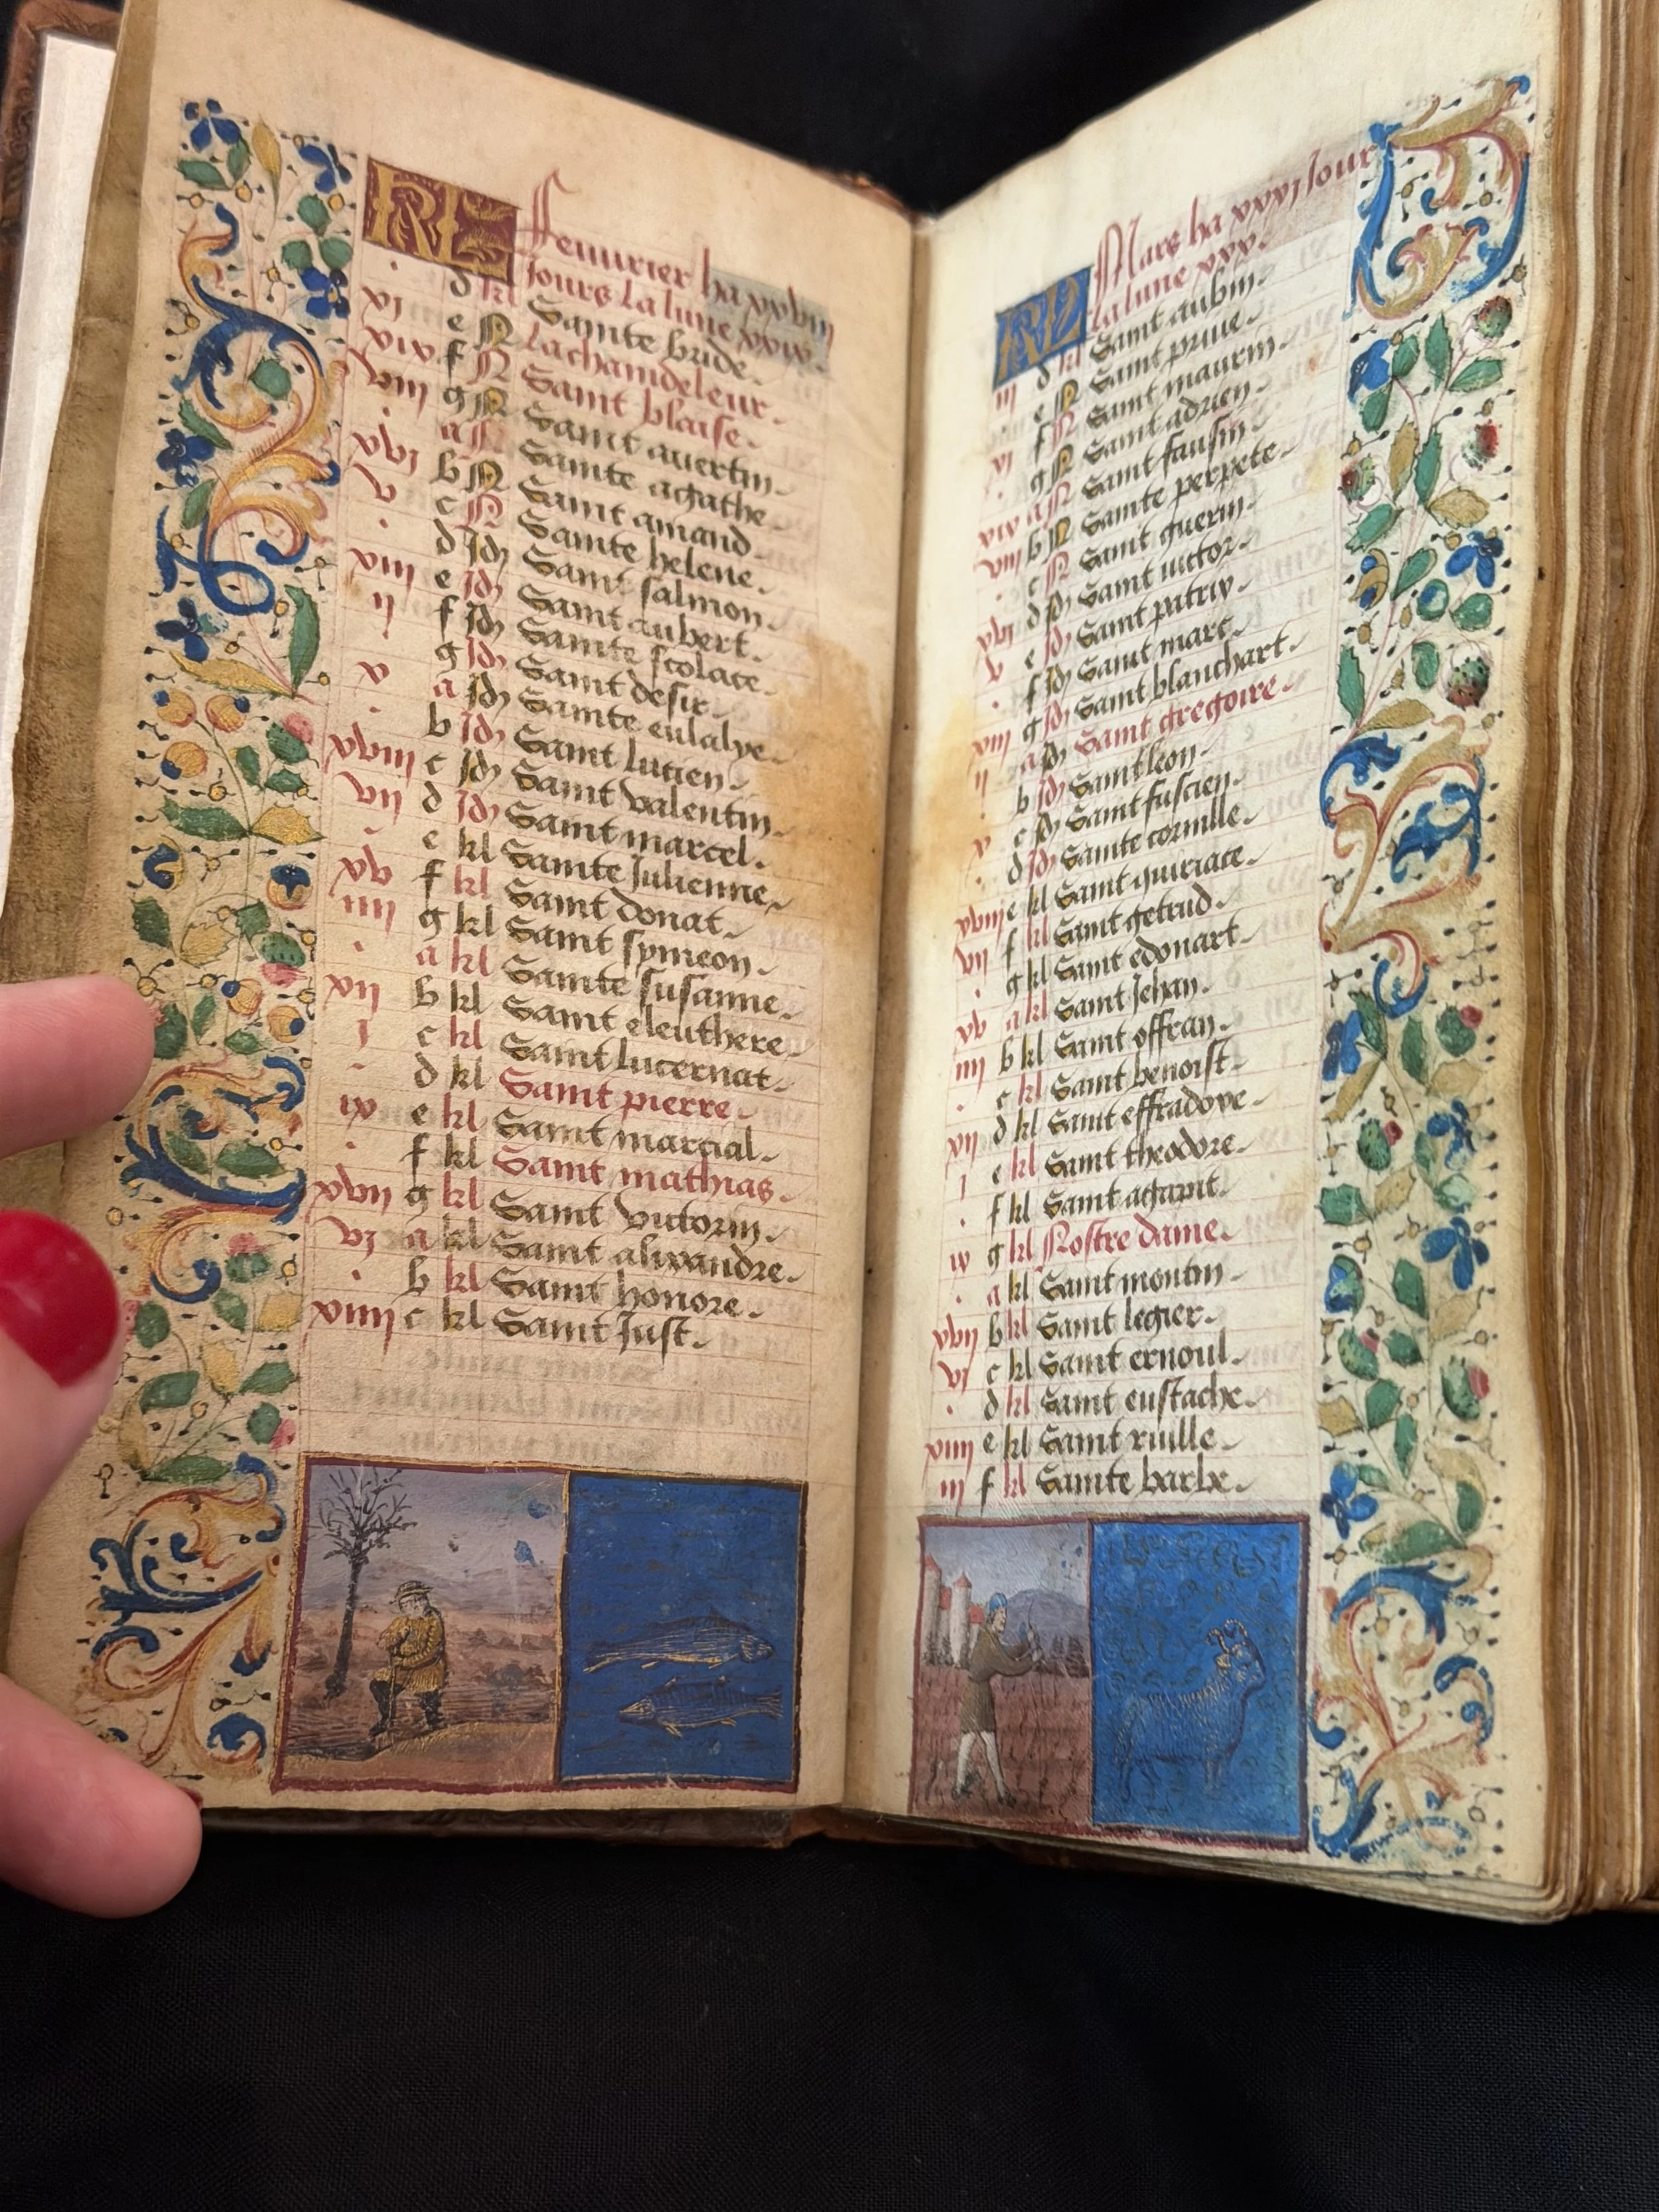 KL Feurier ha xxviij
Jours La lune xxix.
d kl Sainte bride.
xj e N Lachandeleur.
xix f N Saint blaise.
viij g N Saint auertin.
. a N Sainte agathe
xvj b N Saint amand.
v c N Sainte helene.
. d Id Saint salmon
xiij e Id Saint aubert.
ij f Id Sainte scolace.
. g Id Saint desir.
x a Id Sainte eulalye.
. b Id Saint lucien.
xviij c Id Saint valentin.
vij d Id Saint marcel.
. e kl Sainte Julienne.
xv f kl Saint donat.
iiij g kl Saint symeon.
. a kl Sainte susanne.
xij b kl Saint eleuthere.
j c kl Saint lucernat.
. d kl Saint pierre.
ix e kl Saint marcial.
. f kl Saint mathias.
xvij g kl Saint victorin.
vj a kl Saint alixandre.
. b kl Saint honore.
xiiij c kl Saint Just.
KL Mars ha xxxj Jour
La lune xxx.
iij d kl Saint aubin.
. e N Saint priue.
xj f N Saint maurin.
. g N Saint adrien.
xix a N Saint fausin.
viij b N Sainte perpete.
. c N Saint guerin.
xvj d Id Saint victor.
v e Id Saint patrix.
. f Id Saint marc.
xiij g Id Saint blanchart.
ij a Id Saint gregoire.
. b Id Saint leon.
x c Id Saint fuscien.
. d Id Sainte cornille.
xviij e kl Saint quiriace.
vij f kl Saint getrud.
. g kl Saint edouart.
xv a kl Saint Jehan.
iiij b kl Saint offran.
. c kl Saint benoist.
xij d kl Saint effradoxe.
j e kl Saint theodore.
. f kl Saint agapit.
ix g kl Nostre dame.
. a kl Saint montin.
xvij b kl Saint legier.
vj c kl Saint ernoul.
. d kl Saint eustache.
xiiij e kl Saint riulle.
iij f kl Sainte barbe.